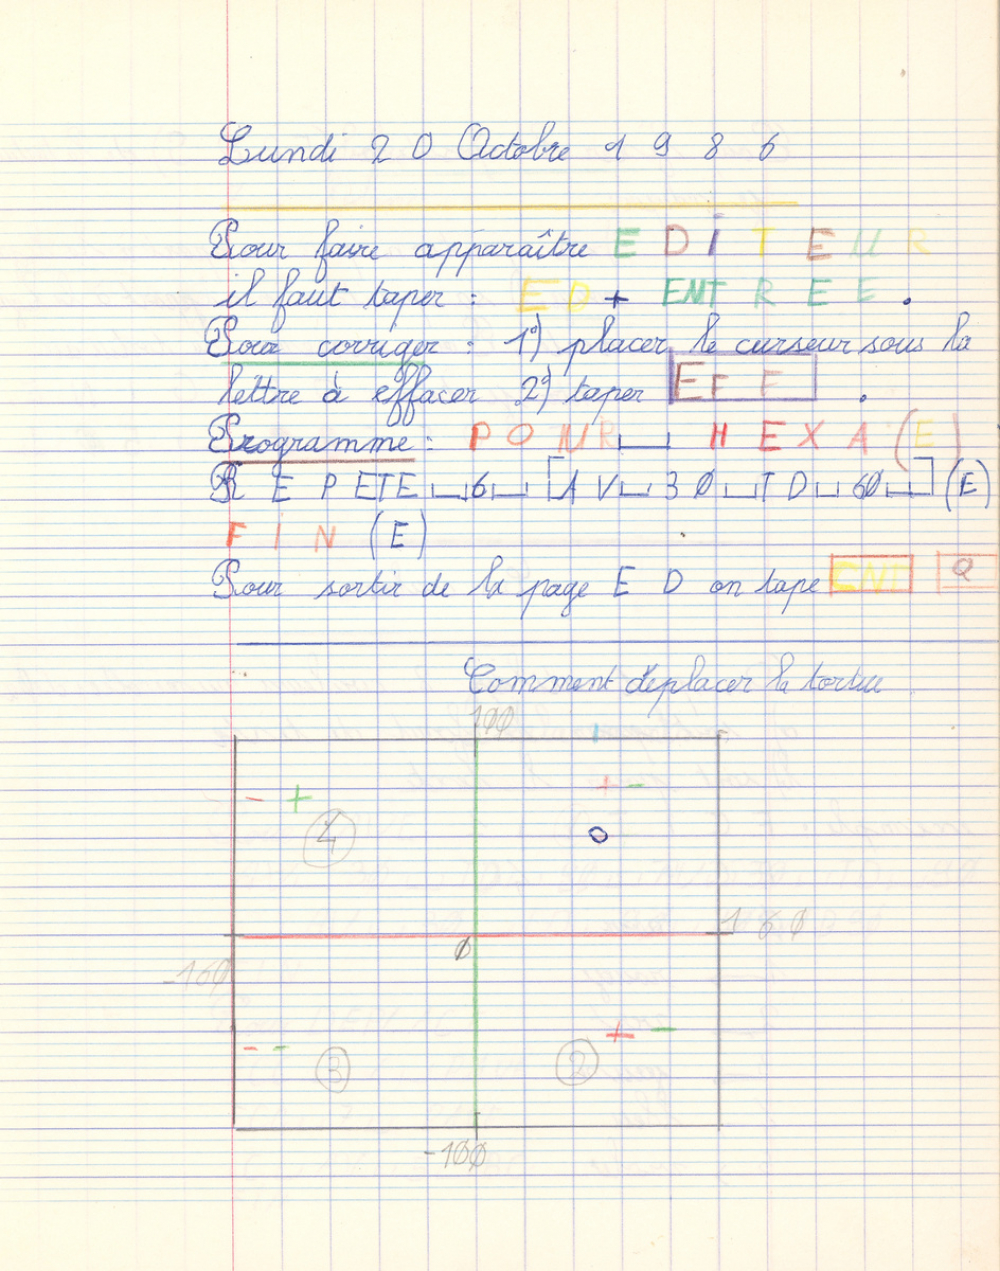 Lundi 20 Octobre 1986
Pour faire apparaître EDITEUR
il faut taper : ED + ENTREE.
Pour corriger : 1°) placer le curseur sous la
lettre à effacer 2°) taper EFF .
Programme : POUR␣HEXA (E)
REPETE␣6␣[AV␣30␣TD␣60␣] (E)
FIN (E)
Pour sortir de la page ED on tape CNT Q
Comment déplacer la tortue
100
- + + -
4
160
0
-160
+ -
- -
3 2
-100